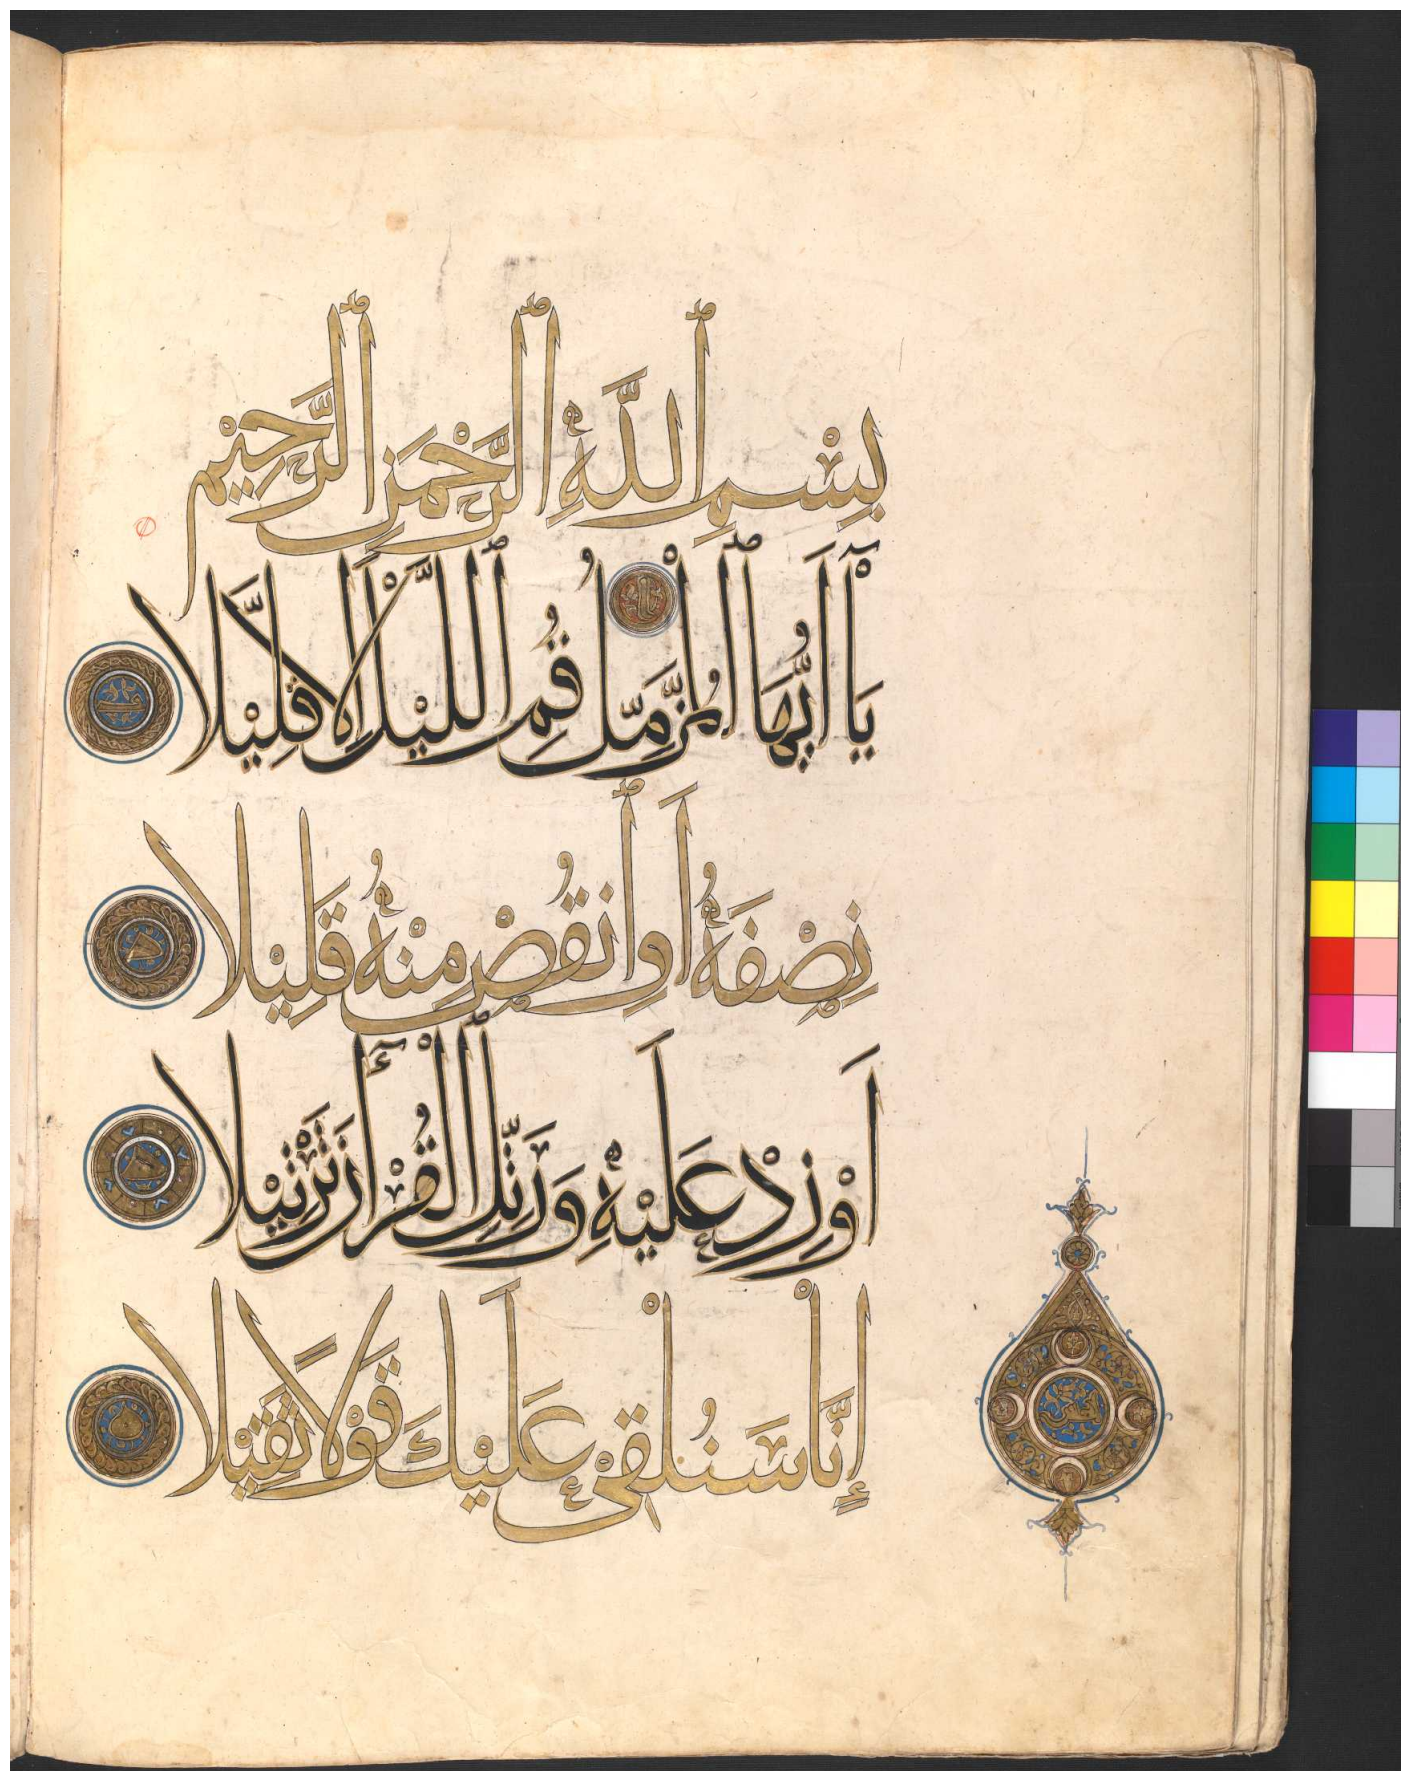 بِسْمِ ٱللَّهِ ٱلرَّحْمَنِ ٱلرَّحِيْمِ
يَآ أَيُّهَا ٱلْمُزَّمِّلُ قُمِ ٱللَّيْلَ إِلَّا قَلِيْلًا
نِصْفَهُ أَوِ ٱنْقُصْ مِنْهُ قَلِيْلًا
أَوْ زِدْ عَلَيْهِ وَرَتِّلِ ٱلْقُرْآنَ تَرْتِيْلًا
إِنَّا سَنُلْقِيْ عَلَيْكَ قَوْلًا ثَقِيْلًا